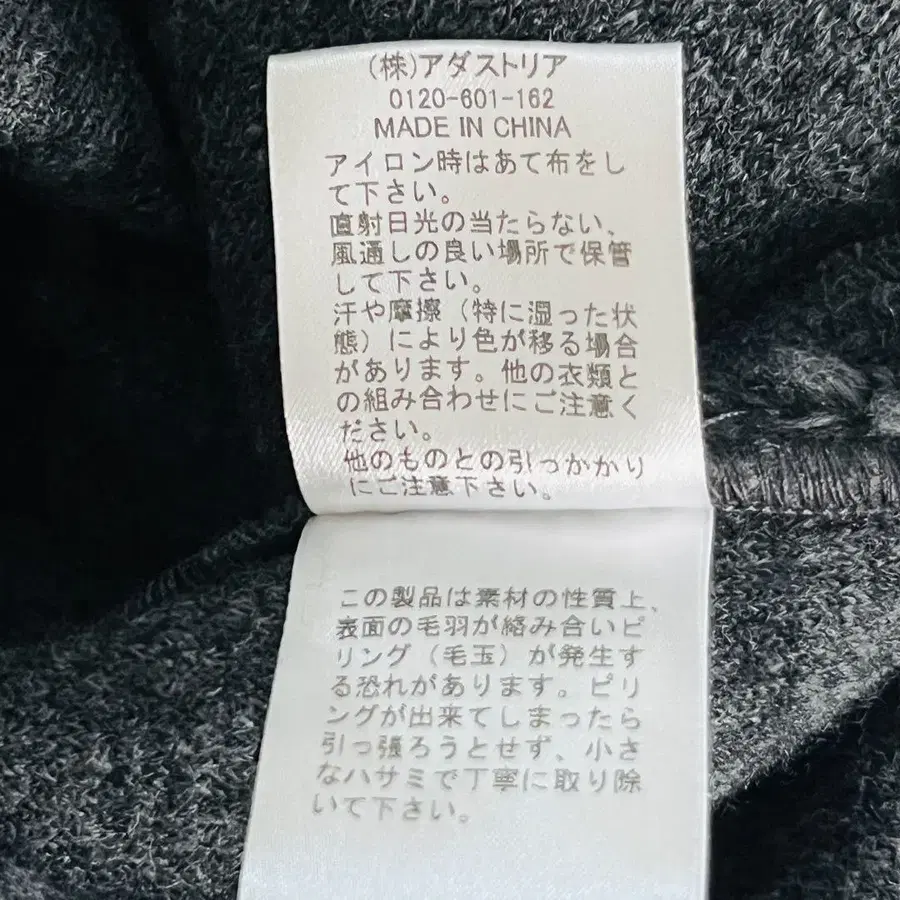 (株)アダストリア
0120-601-162
MADE IN CHINA
アイロン時はあて布をし
て下さい。
直射日光の当たらない、
風通しの良い場所で保管
して下さい。
汗や摩擦（特に湿った状
態）により色が移る場合
があります。他の衣類と
の組み合わせにご注意く
ださい。
他のものとの引っかかり
にご注意下さい。
この製品は素材の性質上、
表面の毛羽が絡み合いピ
リング（毛玉）が発生す
る恐れがあります。ピリ
ングが出来てしまったら
引っ張ろうとせず、小さ
なハサミで丁寧に取り除
いて下さい。